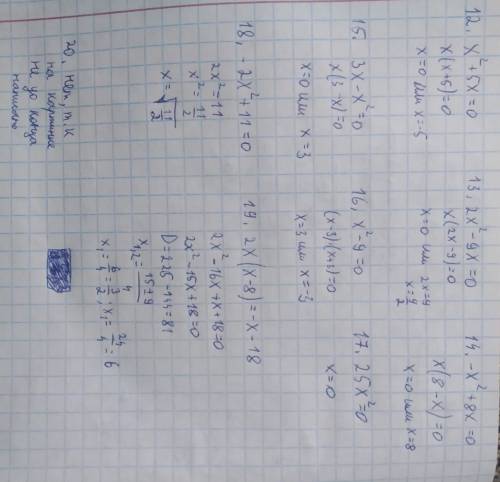 12. x²+5x=0
x(x+5)=0
x=0 или x=-5
13. 2x²-9x=0
x(2x-9)=0
x=0 или 2x=9
x=9/2
14. -x²+8x=0
x(8-x)=0
x=0 или x=8
15. 3x-x²=0
x(3-x)=0
x=0 или x=3
16. x²-9=0
(x-3)(x+3)=0
x=3 или x=-3
17. 25x²=0
x=0
18. -2x²+11=0
2x²=11
x²=11/2
x=√11/2
19. 2x(x-8)=-x-18
2x²-16x+x+18=0
2x²-15x+18=0
D=225-144=81
x₁,₂=15±9/4
x=6/4=3/2; x₁=24/4=6
20. нет, т.к
на картинке
не до конца
написано